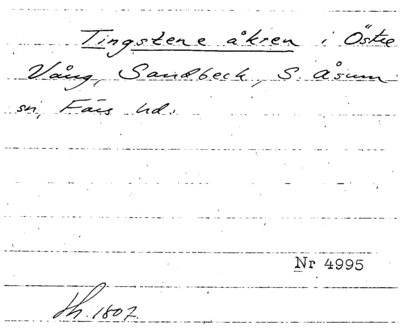 Tingstene åkren i Östre
Vång, Sandbeck, S. Åsum
sn, Färs hd.
Nr 4995
Hh. 1807